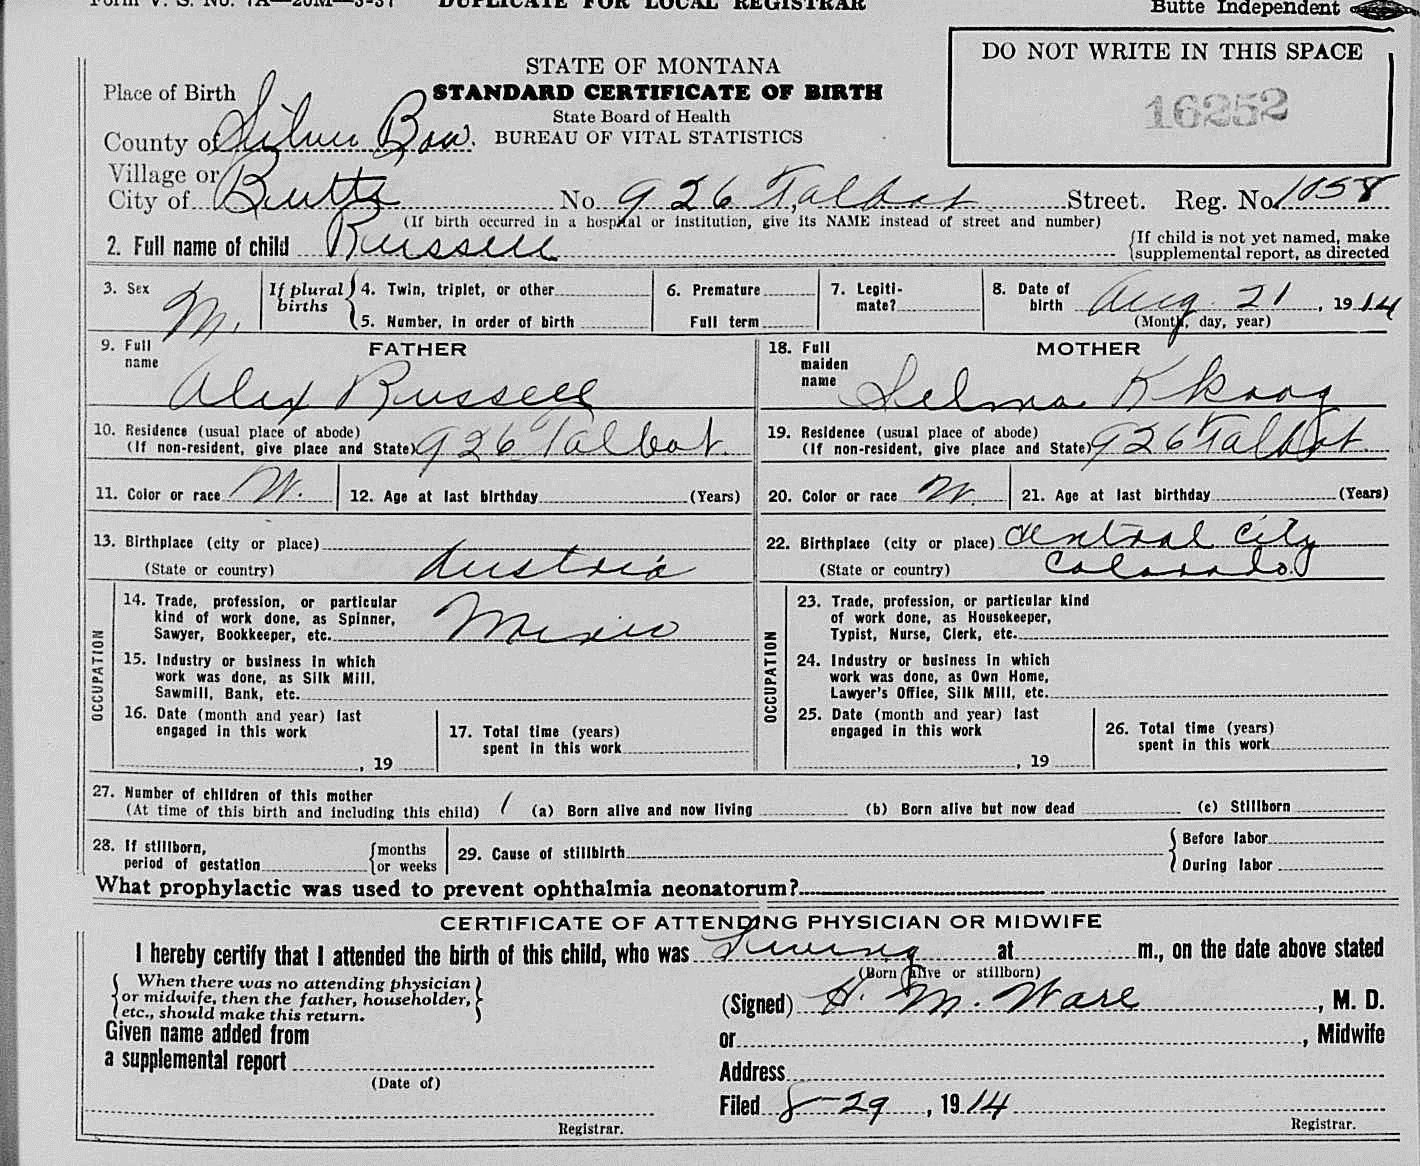 Form V. S. No. 7A—20M—3-37 DUPLICATE FOR LOCAL REGISTRAR Butte Independent
STATE OF MONTANA
STANDARD CERTIFICATE OF BIRTH
State Board of Health
BUREAU OF VITAL STATISTICS
DO NOT WRITE IN THIS SPACE
16252
Place of Birth
County of Silver Bow.
Village or
City of Butte No. 926 Talbot Street. Reg. No. 1058
(If birth occurred in a hospital or institution, give its NAME instead of street and number)
2. Full name of child Russell {If child is not yet named, make
supplemental report, as directed
3. Sex M. If plural births { 4. Twin, triplet, or other
5. Number, in order of birth
6. Premature
Full term
7. Legiti-
mate?
8. Date of
birth Aug. 21, 1914
(Month, day, year)
FATHER
9. Full
name
Alex Russell
10. Residence (usual place of abode)
(If non-resident, give place and State) 926 Talbot.
11. Color or race W. 12. Age at last birthday (Years)
13. Birthplace (city or place)
(State or country) Austria
OCCUPATION
14. Trade, profession, or particular
kind of work done, as Spinner,
Sawyer, Bookkeeper, etc.
15. Industry or business in which
work was done, as Silk Mill,
Sawmill, Bank, etc.
16. Date (month and year) last
engaged in this work
, 19
17. Total time (years)
spent in this work
MOTHER
18. Full
maiden
name
Selma
19. Residence (usual place of abode)
(If non-resident, give place and State) 926 Talbot.
20. Color or race W. 21. Age at last birthday (Years)
22. Birthplace (city or place) Central City
(State or country) Colorado.
OCCUPATION
23. Trade, profession, or particular kind
of work done, as Housekeeper,
Typist, Nurse, Clerk, etc.
24. Industry or business in which
work was done, as Own Home,
Lawyer's Office, Silk Mill, etc.
25. Date (month and year) last
engaged in this work
, 19
26. Total time (years)
spent in this work
27. Number of children of this mother
(At time of this birth and including this child) 1 (a) Born alive and now living (b) Born alive but now dead (c) Stillborn
28. If stillborn,
period of gestation {months
or weeks
29. Cause of stillbirth { Before labor
During labor
What prophylactic was used to prevent ophthalmia neonatorum?
CERTIFICATE OF ATTENDING PHYSICIAN OR MIDWIFE
I hereby certify that I attended the birth of this child, who was Living at m., on the date above stated
(Born alive or stillborn)
{ When there was no attending physician
or midwife, then the father, householder,
etc., should make this return. }
(Signed) H. M. Ware, M. D.
Given name added from
a supplemental report
(Date of)
Registrar.
or , Midwife
Address
Filed 8-29, 1914
Registrar.